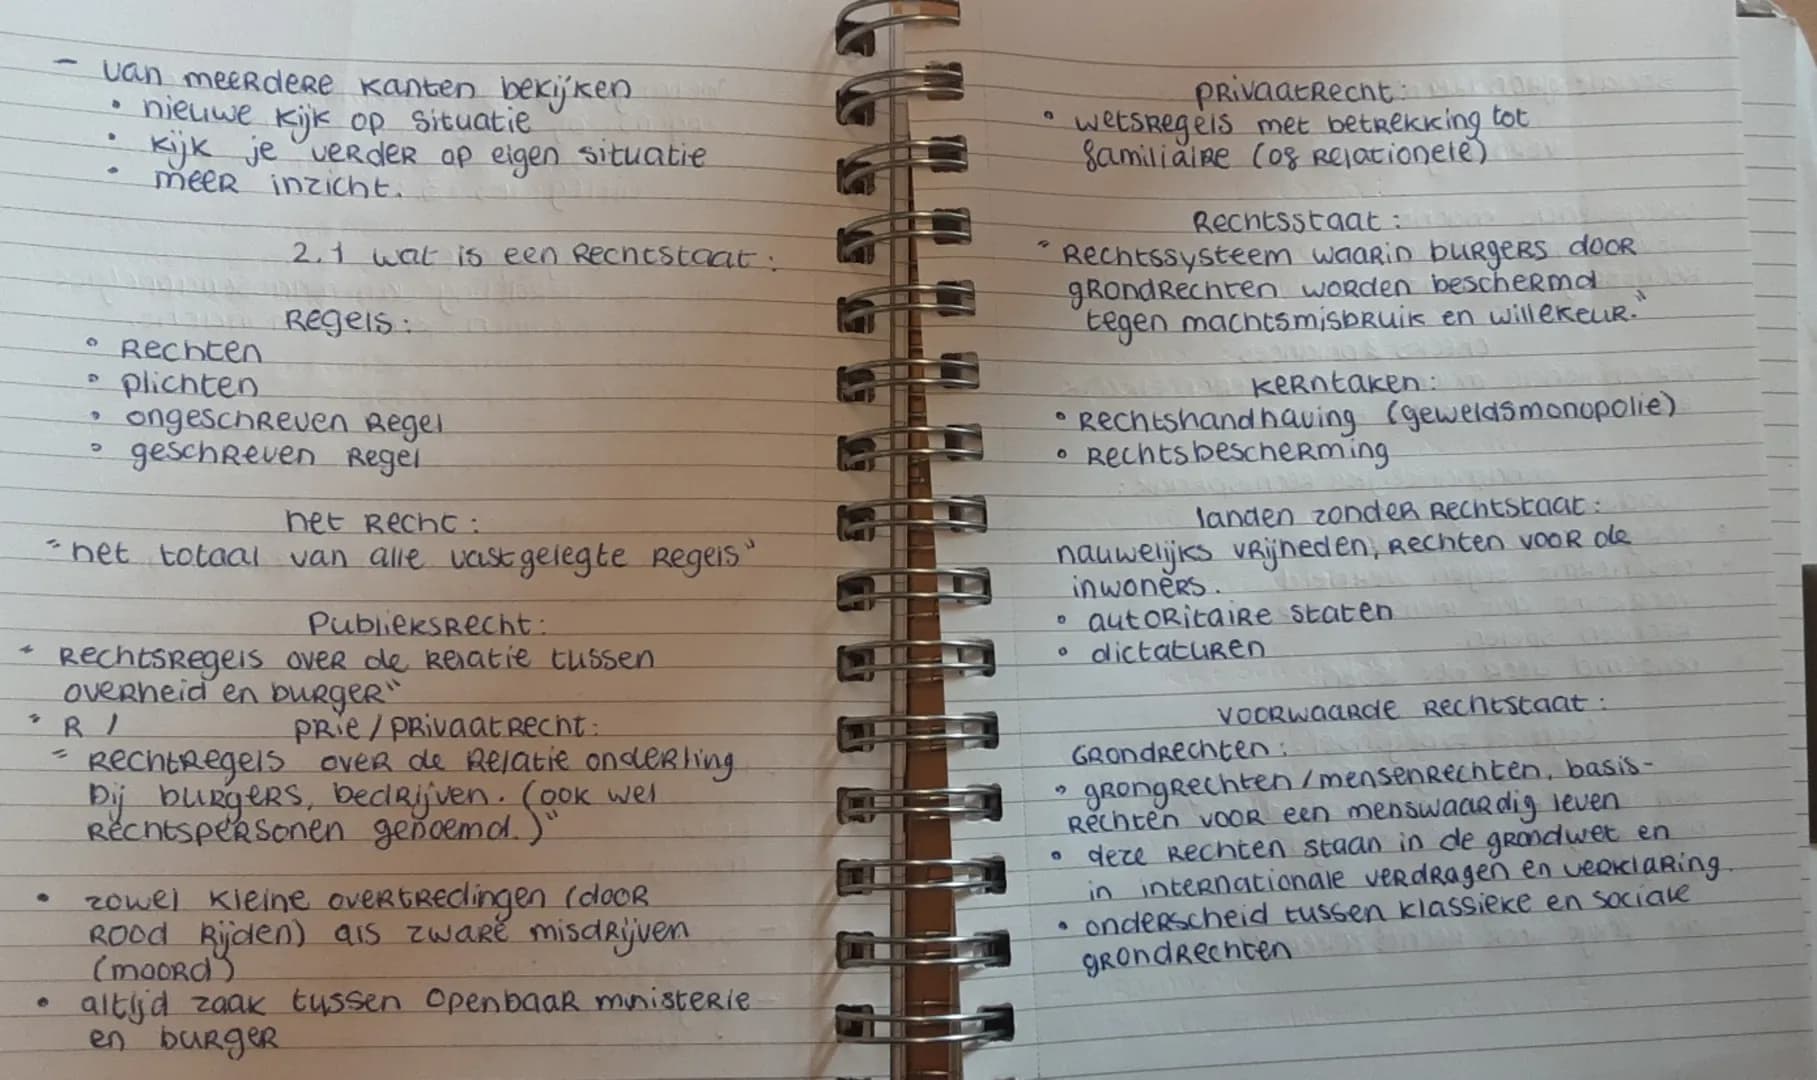 - van meerdere kanten bekijken
• nieuwe kijk op situatie
• kijk je verder op eigen situatie
• meer inzicht.
2.1 wat is een Rechtstaat:
Regels:
• Rechten
• plichten
• ongeschreven Regel
• geschreven Regel
het Recht:
"het totaal van alle vastgelegte Regels"
Publieksrecht:
" Rechtsregels over de Relatie tussen
overheid en burger"
" R / prie/privaatrecht:
" Rechtregels over de Relatie onderling
bij burgers, bedrijven. (ook wel
Rechtspersonen genoemd.)"
• zowel kleine overtredingen (door
Rood Rijden) als zware misdrijven
(moord)
• altijd zaak tussen Openbaar mnisterie
en burger
privaatRecht:
• wetsregels met betrekking tot
familiaire (of Relationele)
Rechtsstaat:
" Rechtssysteem waarin burgers door
grondrechten worden beschermd
tegen machtsmisbruik en willekeur."
kerntaken:
• Rechtshandhaving (geweldsmonopolie)
• Rechtsbescherming
landen zonder Rechtstaat:
nauwelijks vrijheden, Rechten voor de
inwoners.
• autoritaire staten
• dictaturen
voorwaarde Rechtstaat:
Grondrechten:
• grongrechten/mensenrechten, basis-
Rechten voor een menswaardig leven
• deze Rechten staan in de grondwet en
in internationale verdragen en verklaring.
• onderscheid tussen klassieke en sociale
grondrechten